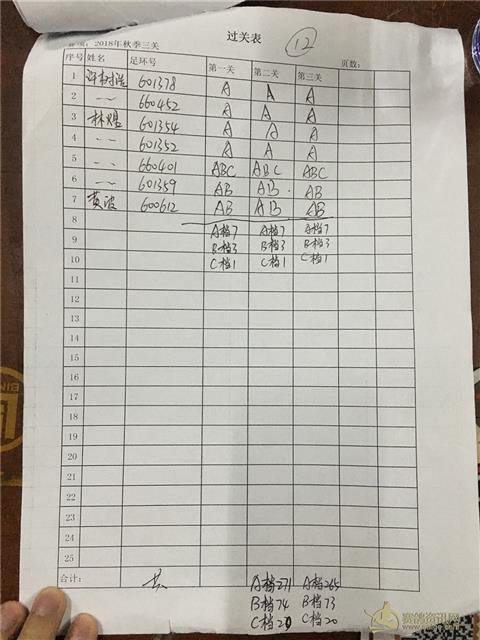 过关表
⑫
事项：2018年秋季三关 页数：
序号 姓名 足环号 第一关 第二关 第三关
1 601378 A A A
2 〃 660452 A A A
3 林煜 601354 A A A
4 〃 601352 A A A
5 〃 660401 ABC ABC ABC
6 〃 601359 AB AB AB
7 黄波 600612 AB AB AB
8 A档7 A档7 A档7
9 B档3 B档3 B档3
10 C档1 C档1 C档1
11
12
13
14
15
16
17
18
19
20
21
22
23
24
25
合计： 共 A档271 A档265
B档74 B档73
C档20 C档20
赛鸽资讯网